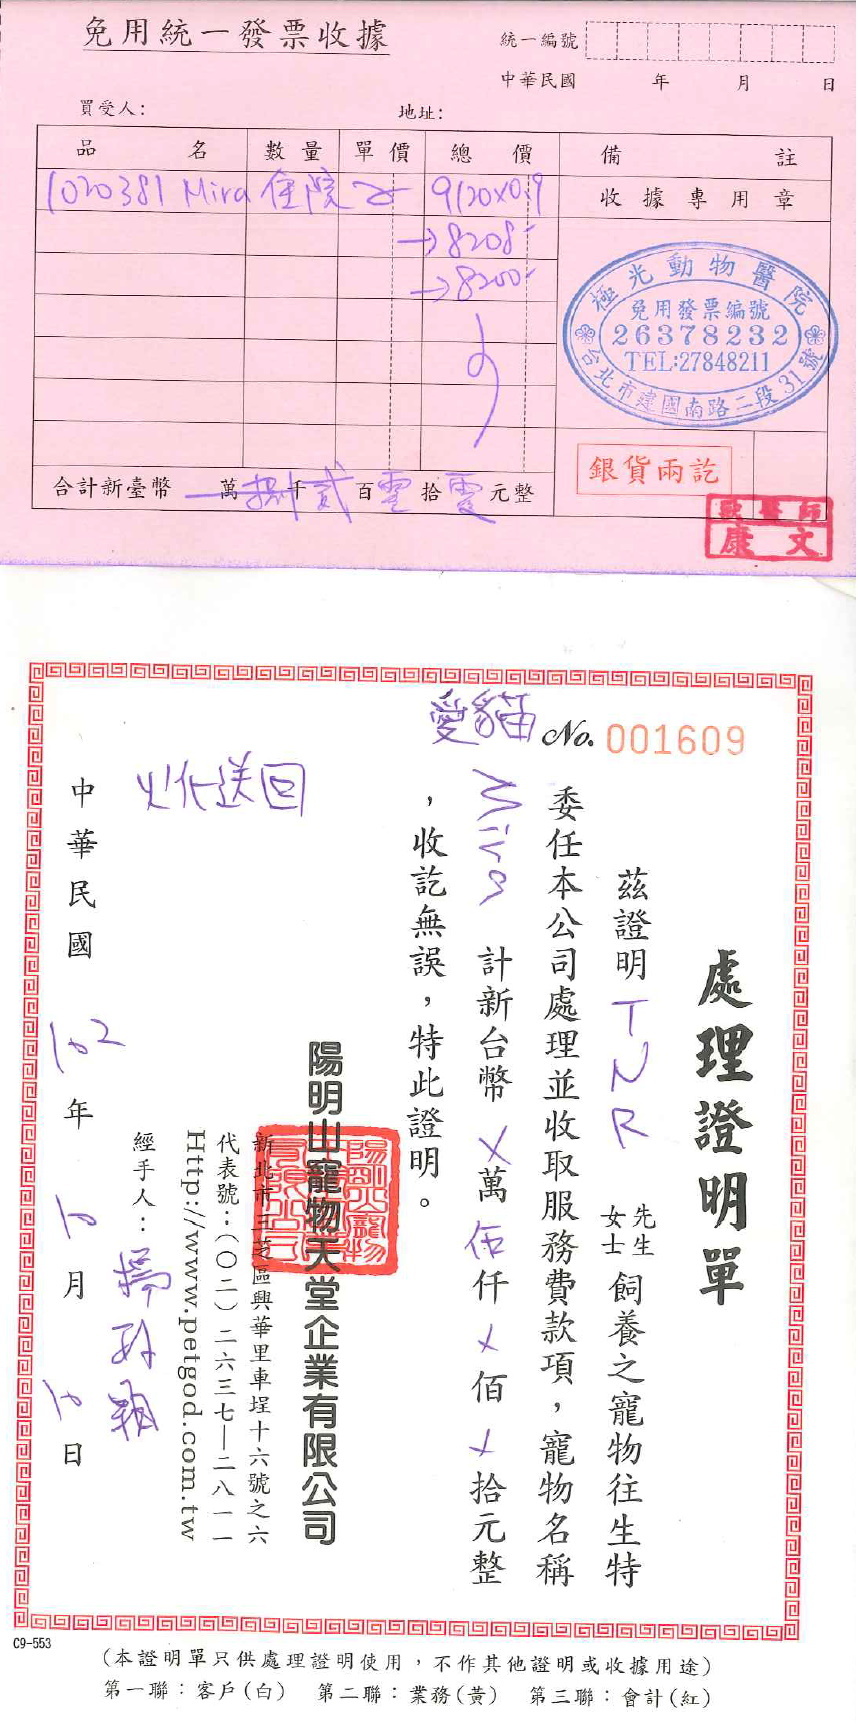 免用統一發票收據
統一編號
中華民國 年 月 日
買受人: 地址:
品名 數量 單價 總價 備註
1020381 Mira 住院 9120x0.9 收據專用章
→8208-
→8200-
極光動物醫院
免用發票編號
26378232
TEL:27848211
台北市建國南路二段31號
銀貨兩訖
合計新臺幣 一萬捌千貳百零拾零元整
獸醫師
康文
愛貓 No. 001609
處理證明單
茲證明 TNR 先生女士 飼養之寵物往生特
委任本公司處理並收取服務費款項,寵物名稱
Mira 計新台幣 X萬伍仟X佰X拾元整
,收訖無誤,特此證明。
陽明山寵物天堂企業有限公司
新北市三芝區興華里車埕十六號之六
代表號:(〇二)二六三七—二八一一
Http://www.petgod.com.tw
經手人:
火化送回
中華民國 102 年 10 月 10 日
C9-553
(本證明單只供處理證明使用,不作其他證明或收據用途)
第一聯:客戶(白) 第二聯:業務(黃) 第三聯:會計(紅)